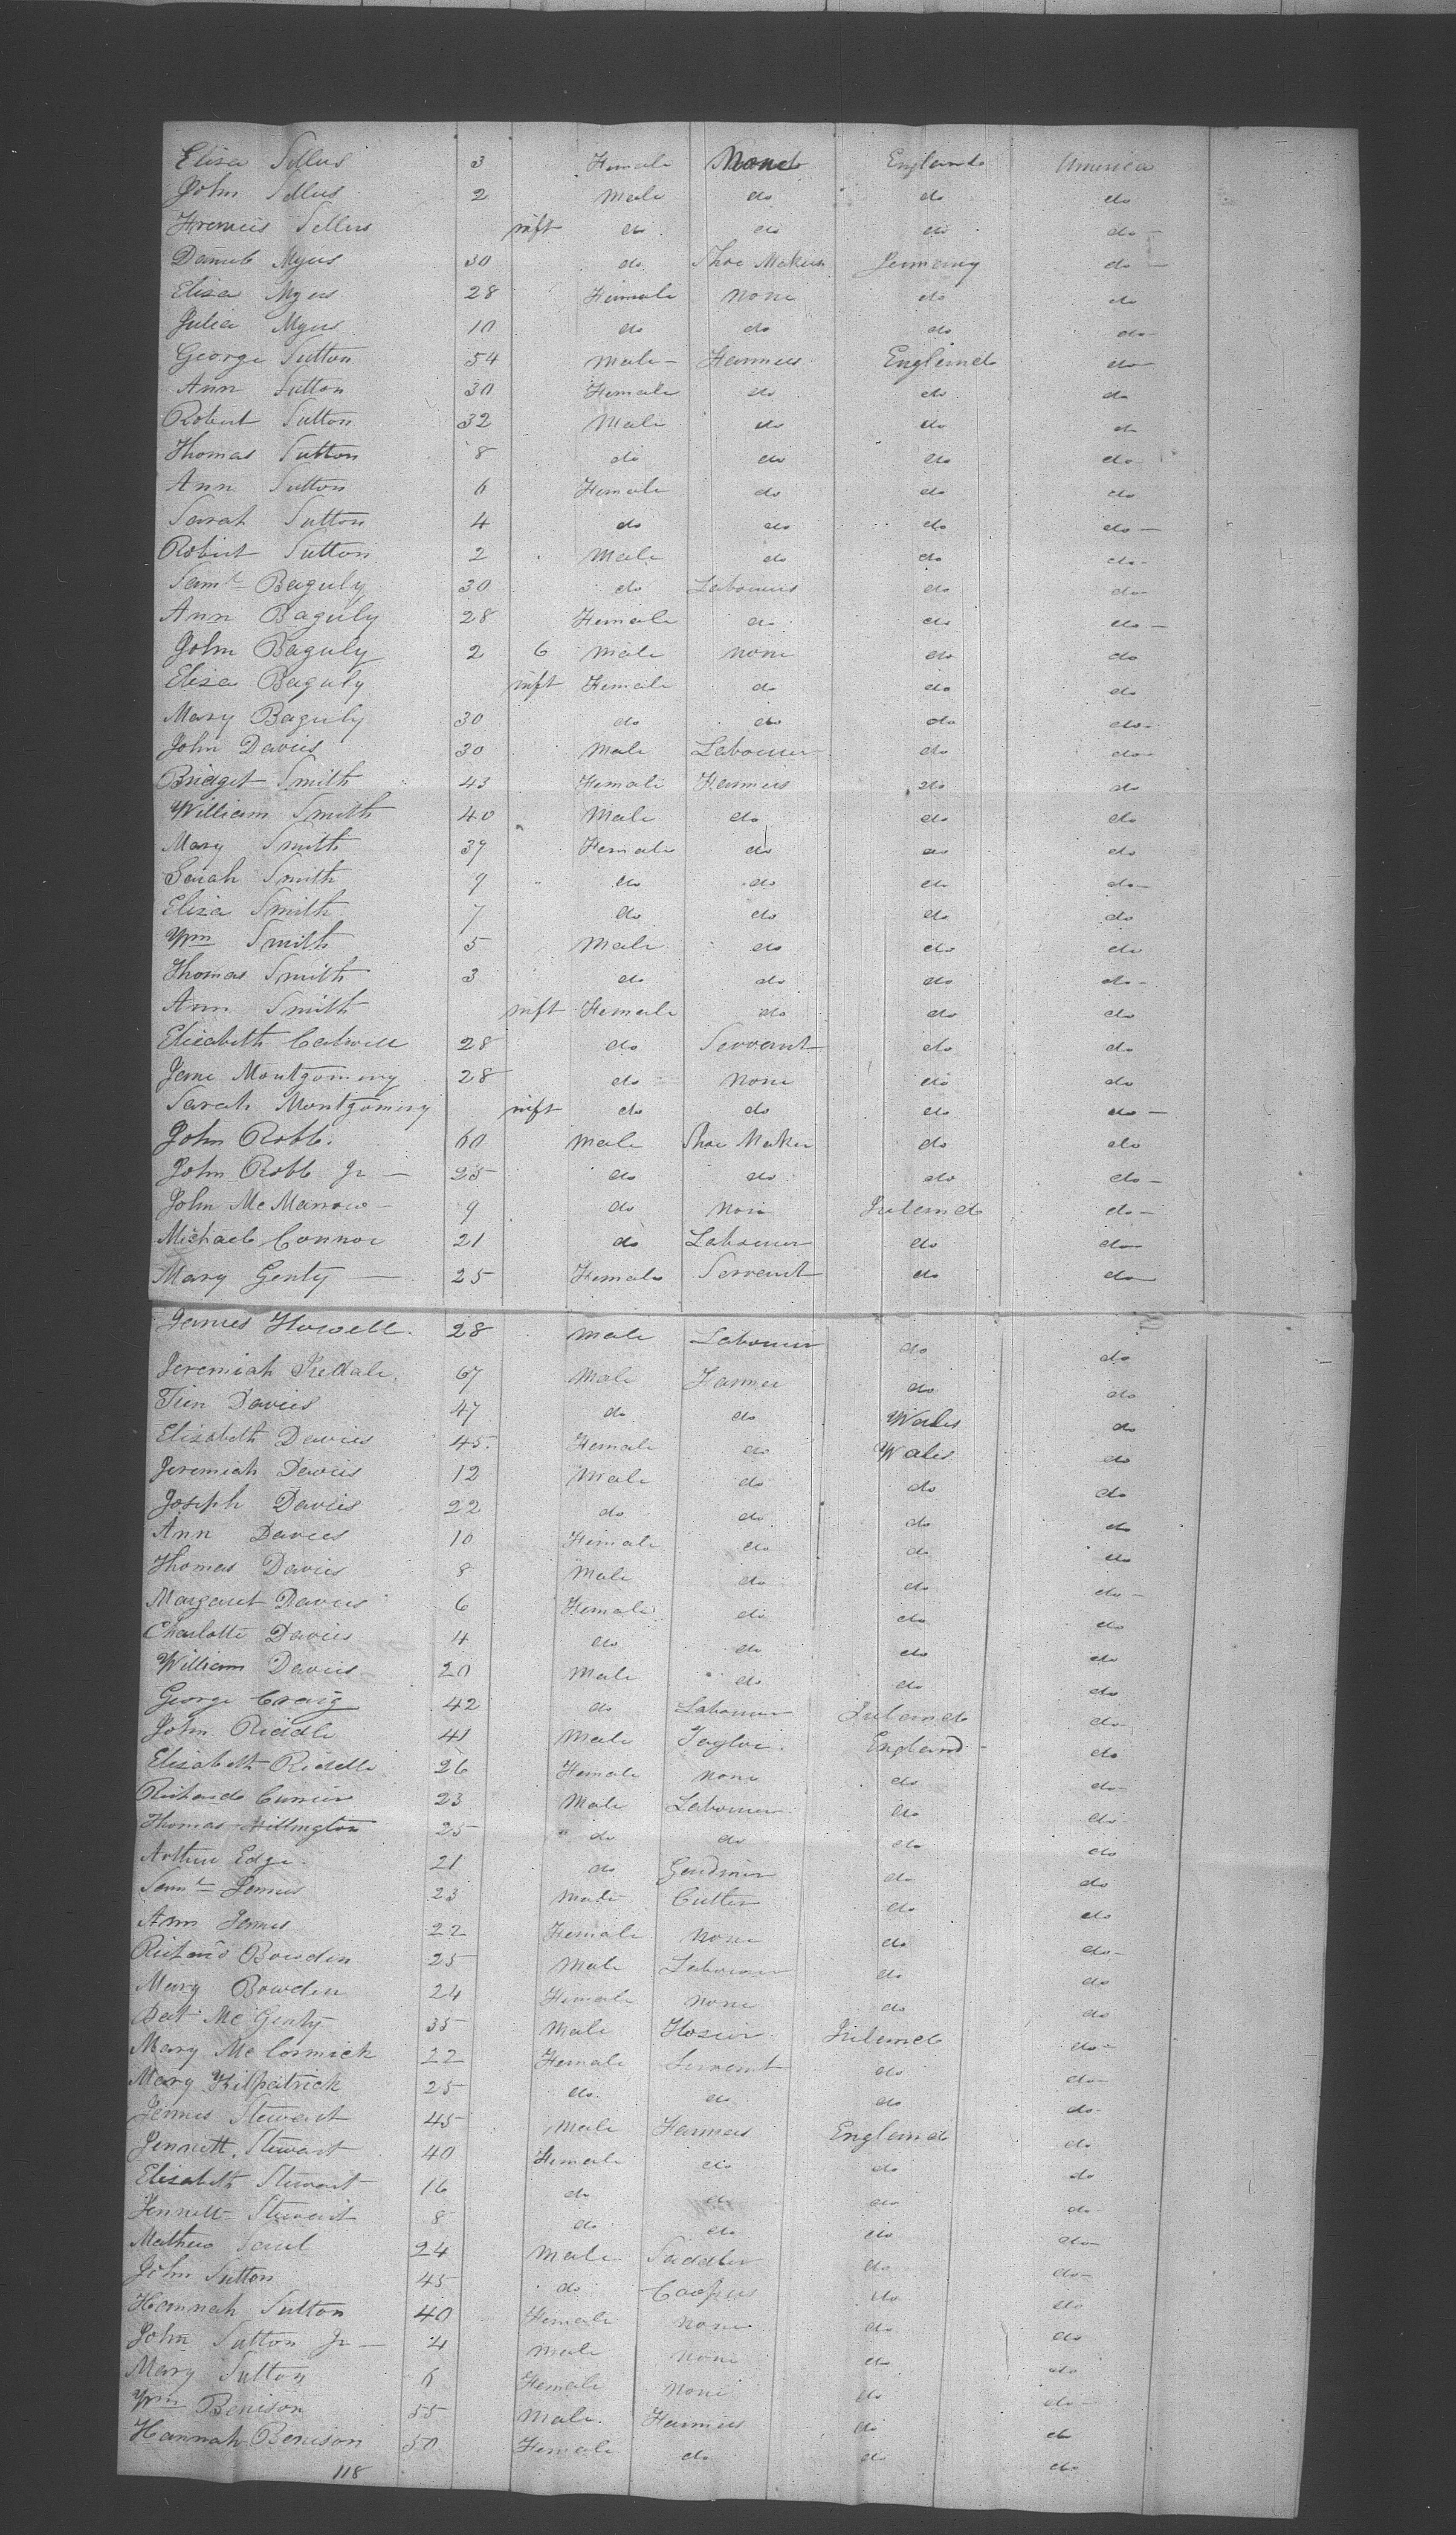 Eliza Sellus 3 Female None England America
John Sellus 2 Male do do do
Francis Sellus inft do do do do
Daniel Myus 30 do Shoe Maker Germany do
Eliza Myus 28 Female none do do
Julia Myus 10 do do do do
George Sutton 54 Male Farmers England do
Ann Sutton 30 Female do do do
Robert Sutton 32 Male do do do
Thomas Sutton 8 do do do do
Ann Sutton 6 Female do do do
Sarah Sutton 4 do do do do
Robert Sutton 2 Male do do do
Saml Baguly 30 do Labourers do do
Ann Baguly 28 Female do do do
John Baguly 2 6 Male none do do
Eliza Baguly inft Female do do do
Mary Baguly 30 do do do do
John Davies 30 Male Labourer do do
Bridget Smith 43 Female Farmers do do
William Smith 40 Male do do do
Mary Smith 39 Female do do do
Sarah Smith 9 do do do do
Eliza Smith 7 do do do do
Wm Smith 5 Male do do do
Thomas Smith 3 do do do do
Ann Smith inft Female do do do
Elizabeth Calwell 28 do Servant do do
Jane Montgomery 28 do none do do
Sarah Montgomery inft do do do do
John Robb. 60 Male Shoe Maker do do
John Robb Jr 25 do do do do
John McMarrow 9 do none Ireland do
Michael Connor 21 do Labourer do do
Mary Genty 25 Female Servant do do
James Howell. 28 Male Labourer do do
Jeremiah 67 Male Farmer do do
Davies 47 do do Wales do
Elizabeth Davies 45 Female do Wales do
Jeremiah Davies 12 Male do do do
Joseph Davies 22 do do do do
Ann Davies 10 Female do do do
Thomas Davies 8 Male do do do
Margaret Davies 6 Female do do do
Charlotte Davies 4 do do do do
William Davies 20 Male do do do
George Craig 42 do Labourer Ireland do
John Riddle 41 Male Taylor. England do
Elizabeth Riddle 26 Female none do do
Richard Currier 23 Male Labourer do do
Thomas Millington 25 do do do do
Arthur Edge 21 do Gardiner do do
Saml James 23 Male Cutler do do
Ann James 22 Female none do do
Richard Bowden 25 Male Labourer do do
Mary Bowden 24 Female none do do
Pat McGenty 35 Male Hosier Ireland do
Mary McCormick 22 Female Servant do do
Mary Kilpatrick 25 do do do do
James Stewart 45 Male Farmers England do
Jennett Stewart 40 Female do do do
Elizabeth Stewart 16 do do do do
Jennett Stewart 8 do do do do
Mathew Saul 24 Male Saddler do do
John Sutton 45 do Coopers do do
Hannah Sutton 40 Female none do do
John Sutton Jr 4 Male none do do
Mary Sutton 6 Female none do do
Wm Benison 55 Male Farmers do do
Hannah Benison 50 Female do do do
118